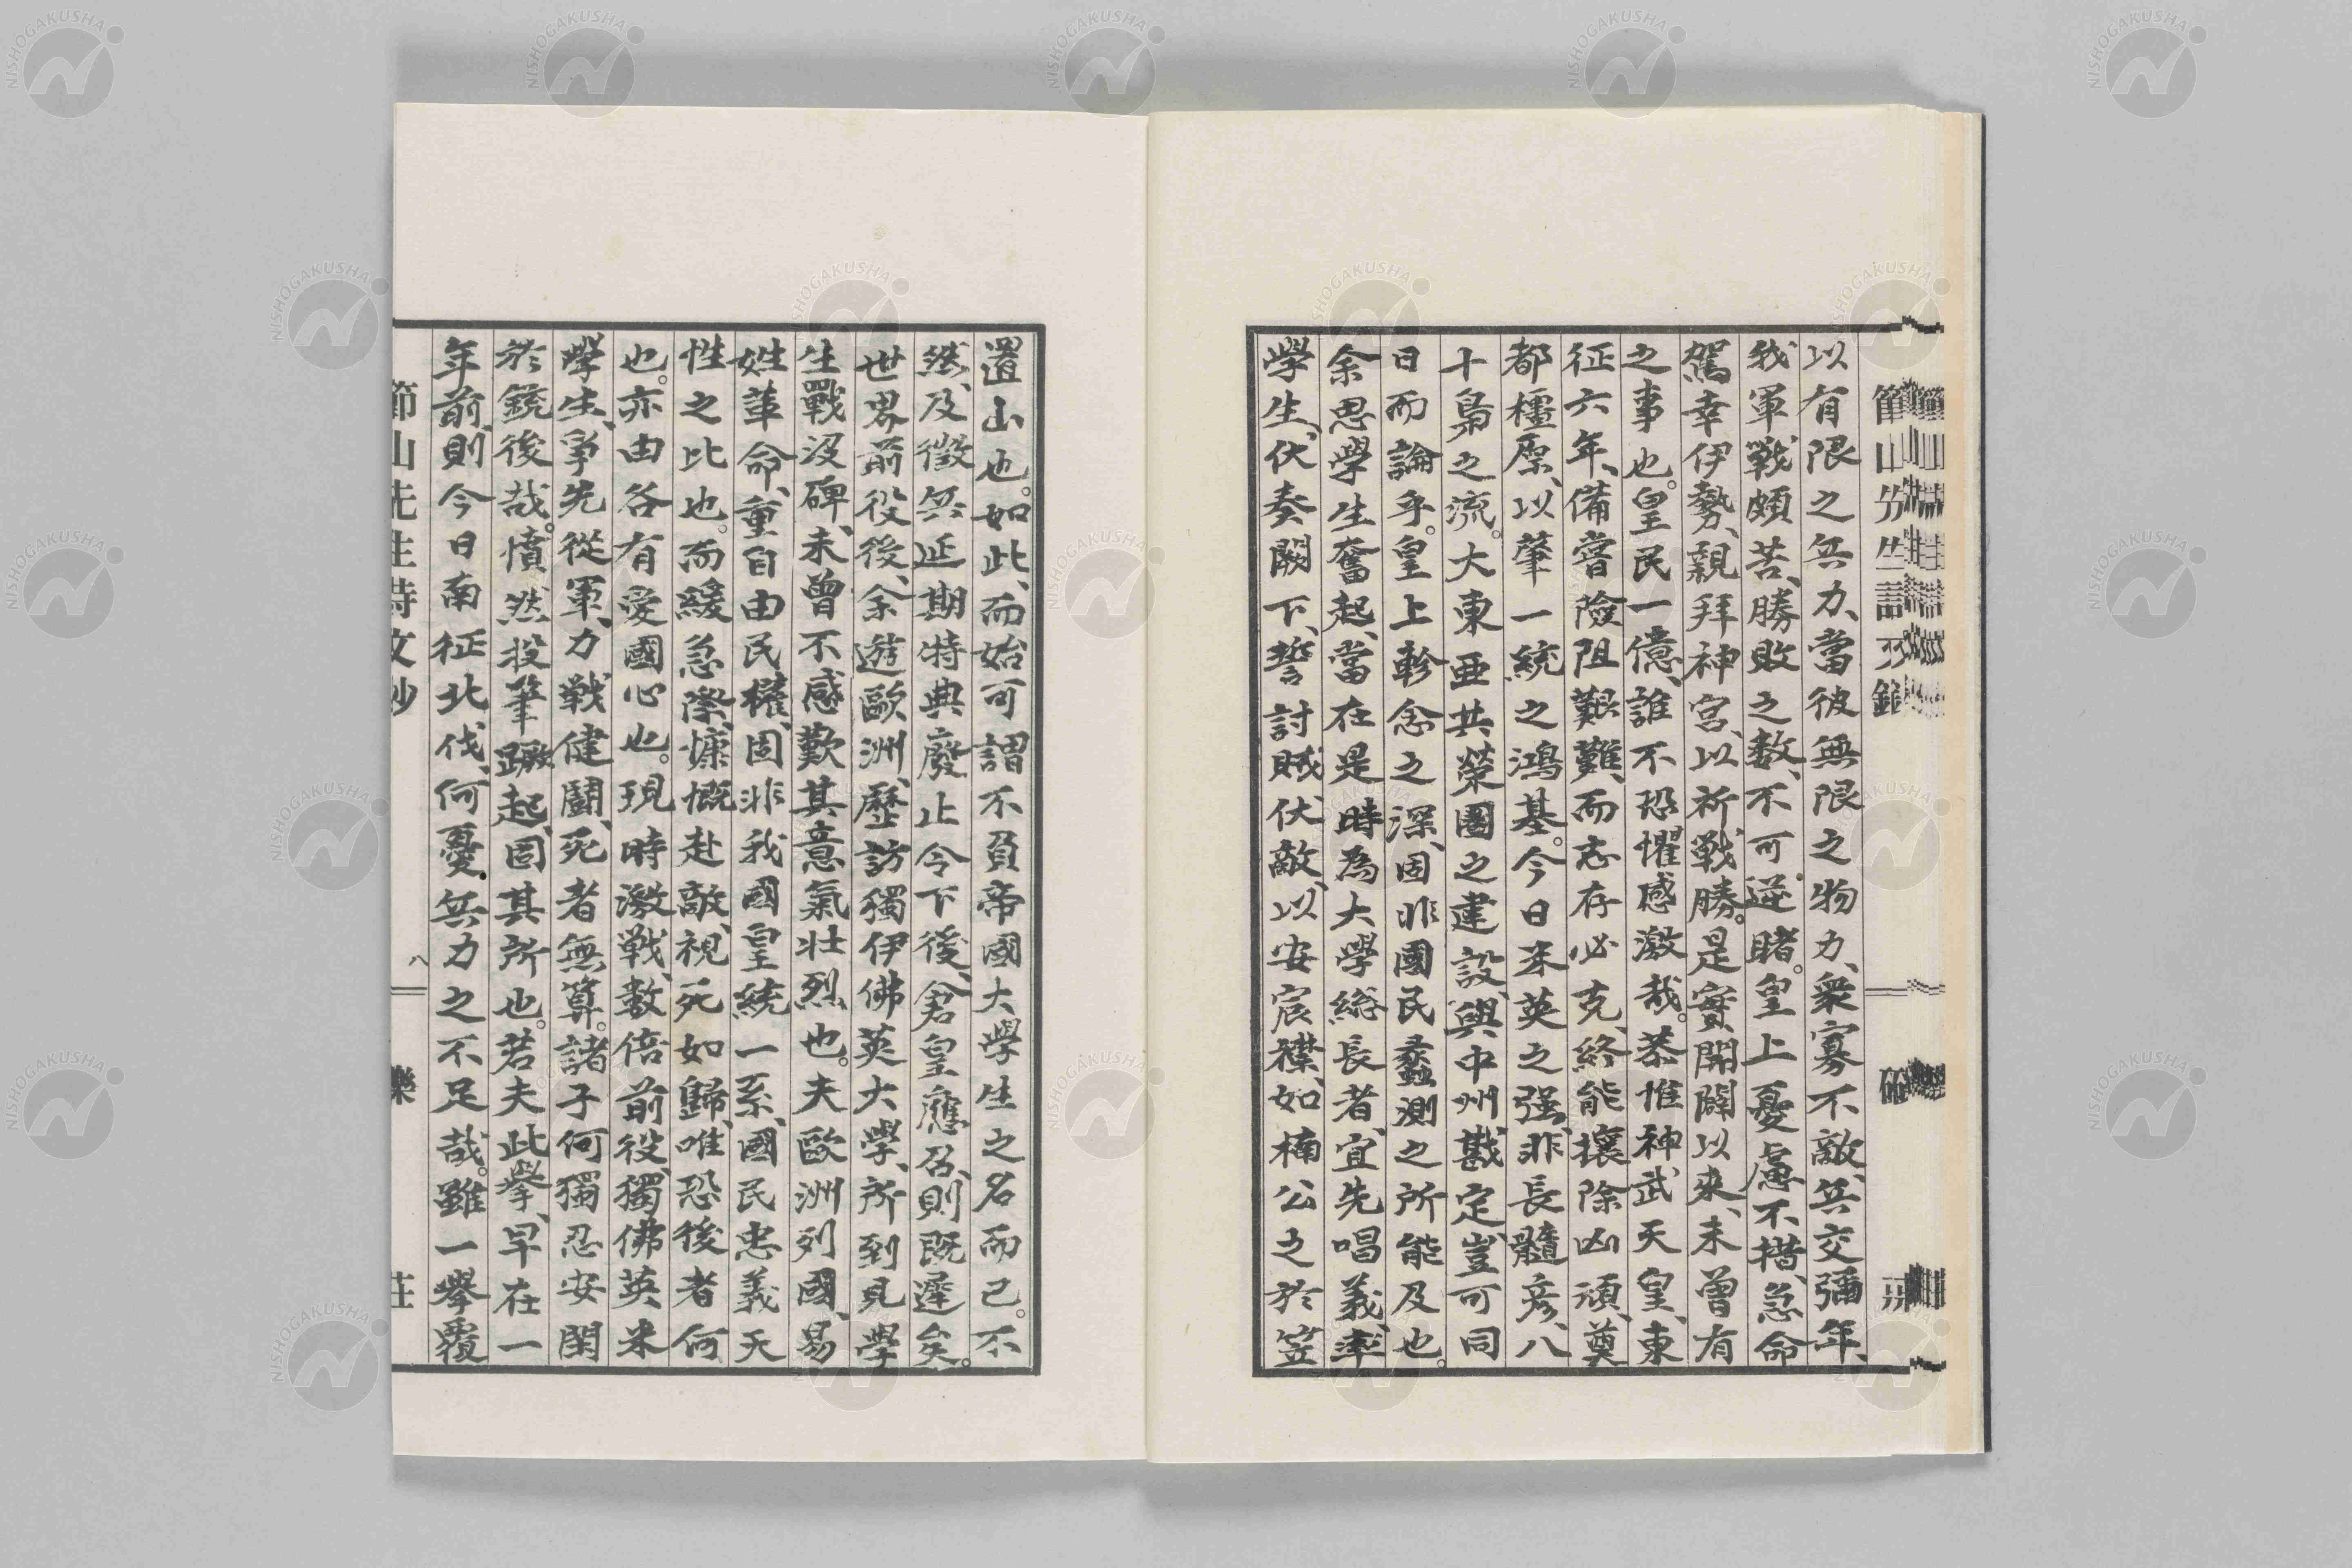 以有限之兵力、當彼無限之物力、衆寡不敵、兵交彌年、
我軍戰頗苦、勝敗之數、不可逆睹。皇上憂慮不措、急命
駕幸伊勢、親拜神宮、以祈戰勝。是實開闢以來、未曾有
之事也。皇民一億、誰不恐懼感激哉。恭惟神武天皇、東
征六年、備嘗險阻艱難、而志存必克、終能攘除凶頑、奠
都橿原、以肇一統之鴻基。今日米英之强、非長髓彦、八
十梟之流。大東亜共榮圏之建設、與中州戡定、豈可同
日而論乎。皇上軫念之深、固非國民蠡測之所能及也。
余思學生奮起、當在是時、為大學総長者、宜先唱義、率
學生、伏奏闕下、誓討賊伏敵、以安宸襟、如楠公之於笠
置山也。如此、而始可謂不負帝國大學生之名而已。不
然、及徵兵延期特典廢止令下後、倉皇應召、則既遲矣。
世界前役後、余遊歐洲、歷訪獨伊佛英大學、所到見學
生戰沒碑、未曾不感歎其意氣壮烈也。夫歐洲列國、易
姓革命、重自由民權、固非我國皇統一系、國民忠義天
性之比也。而緩急際、慷慨赴敵、視死如歸、唯恐後者何
也。亦由各有愛國心也。現時激戰、數倍前役、獨佛英米
學生、爭先從軍、力戰健鬪、死者無算。諸子何獨忍安閑
於銃後哉。憤然投筆蹶起、固其所也。若夫此擧、早在一
年前、則今日南征北伐、何憂兵力之不足哉。雖一擧覆
節山先生詩文鈔
八
樂
莊